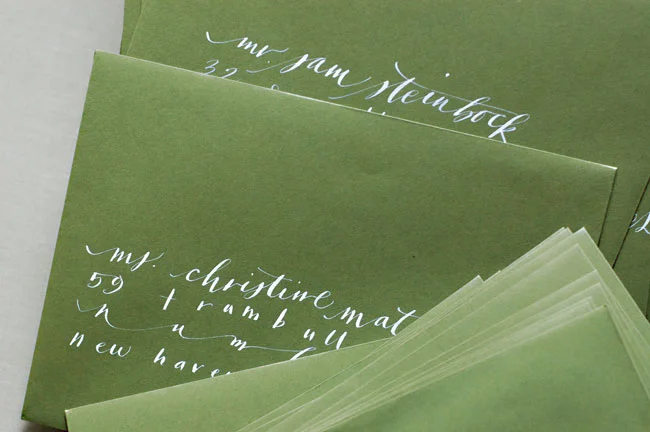 mr. sam steinbock
39
ms. christine mat
59 trumbull
num
new haven